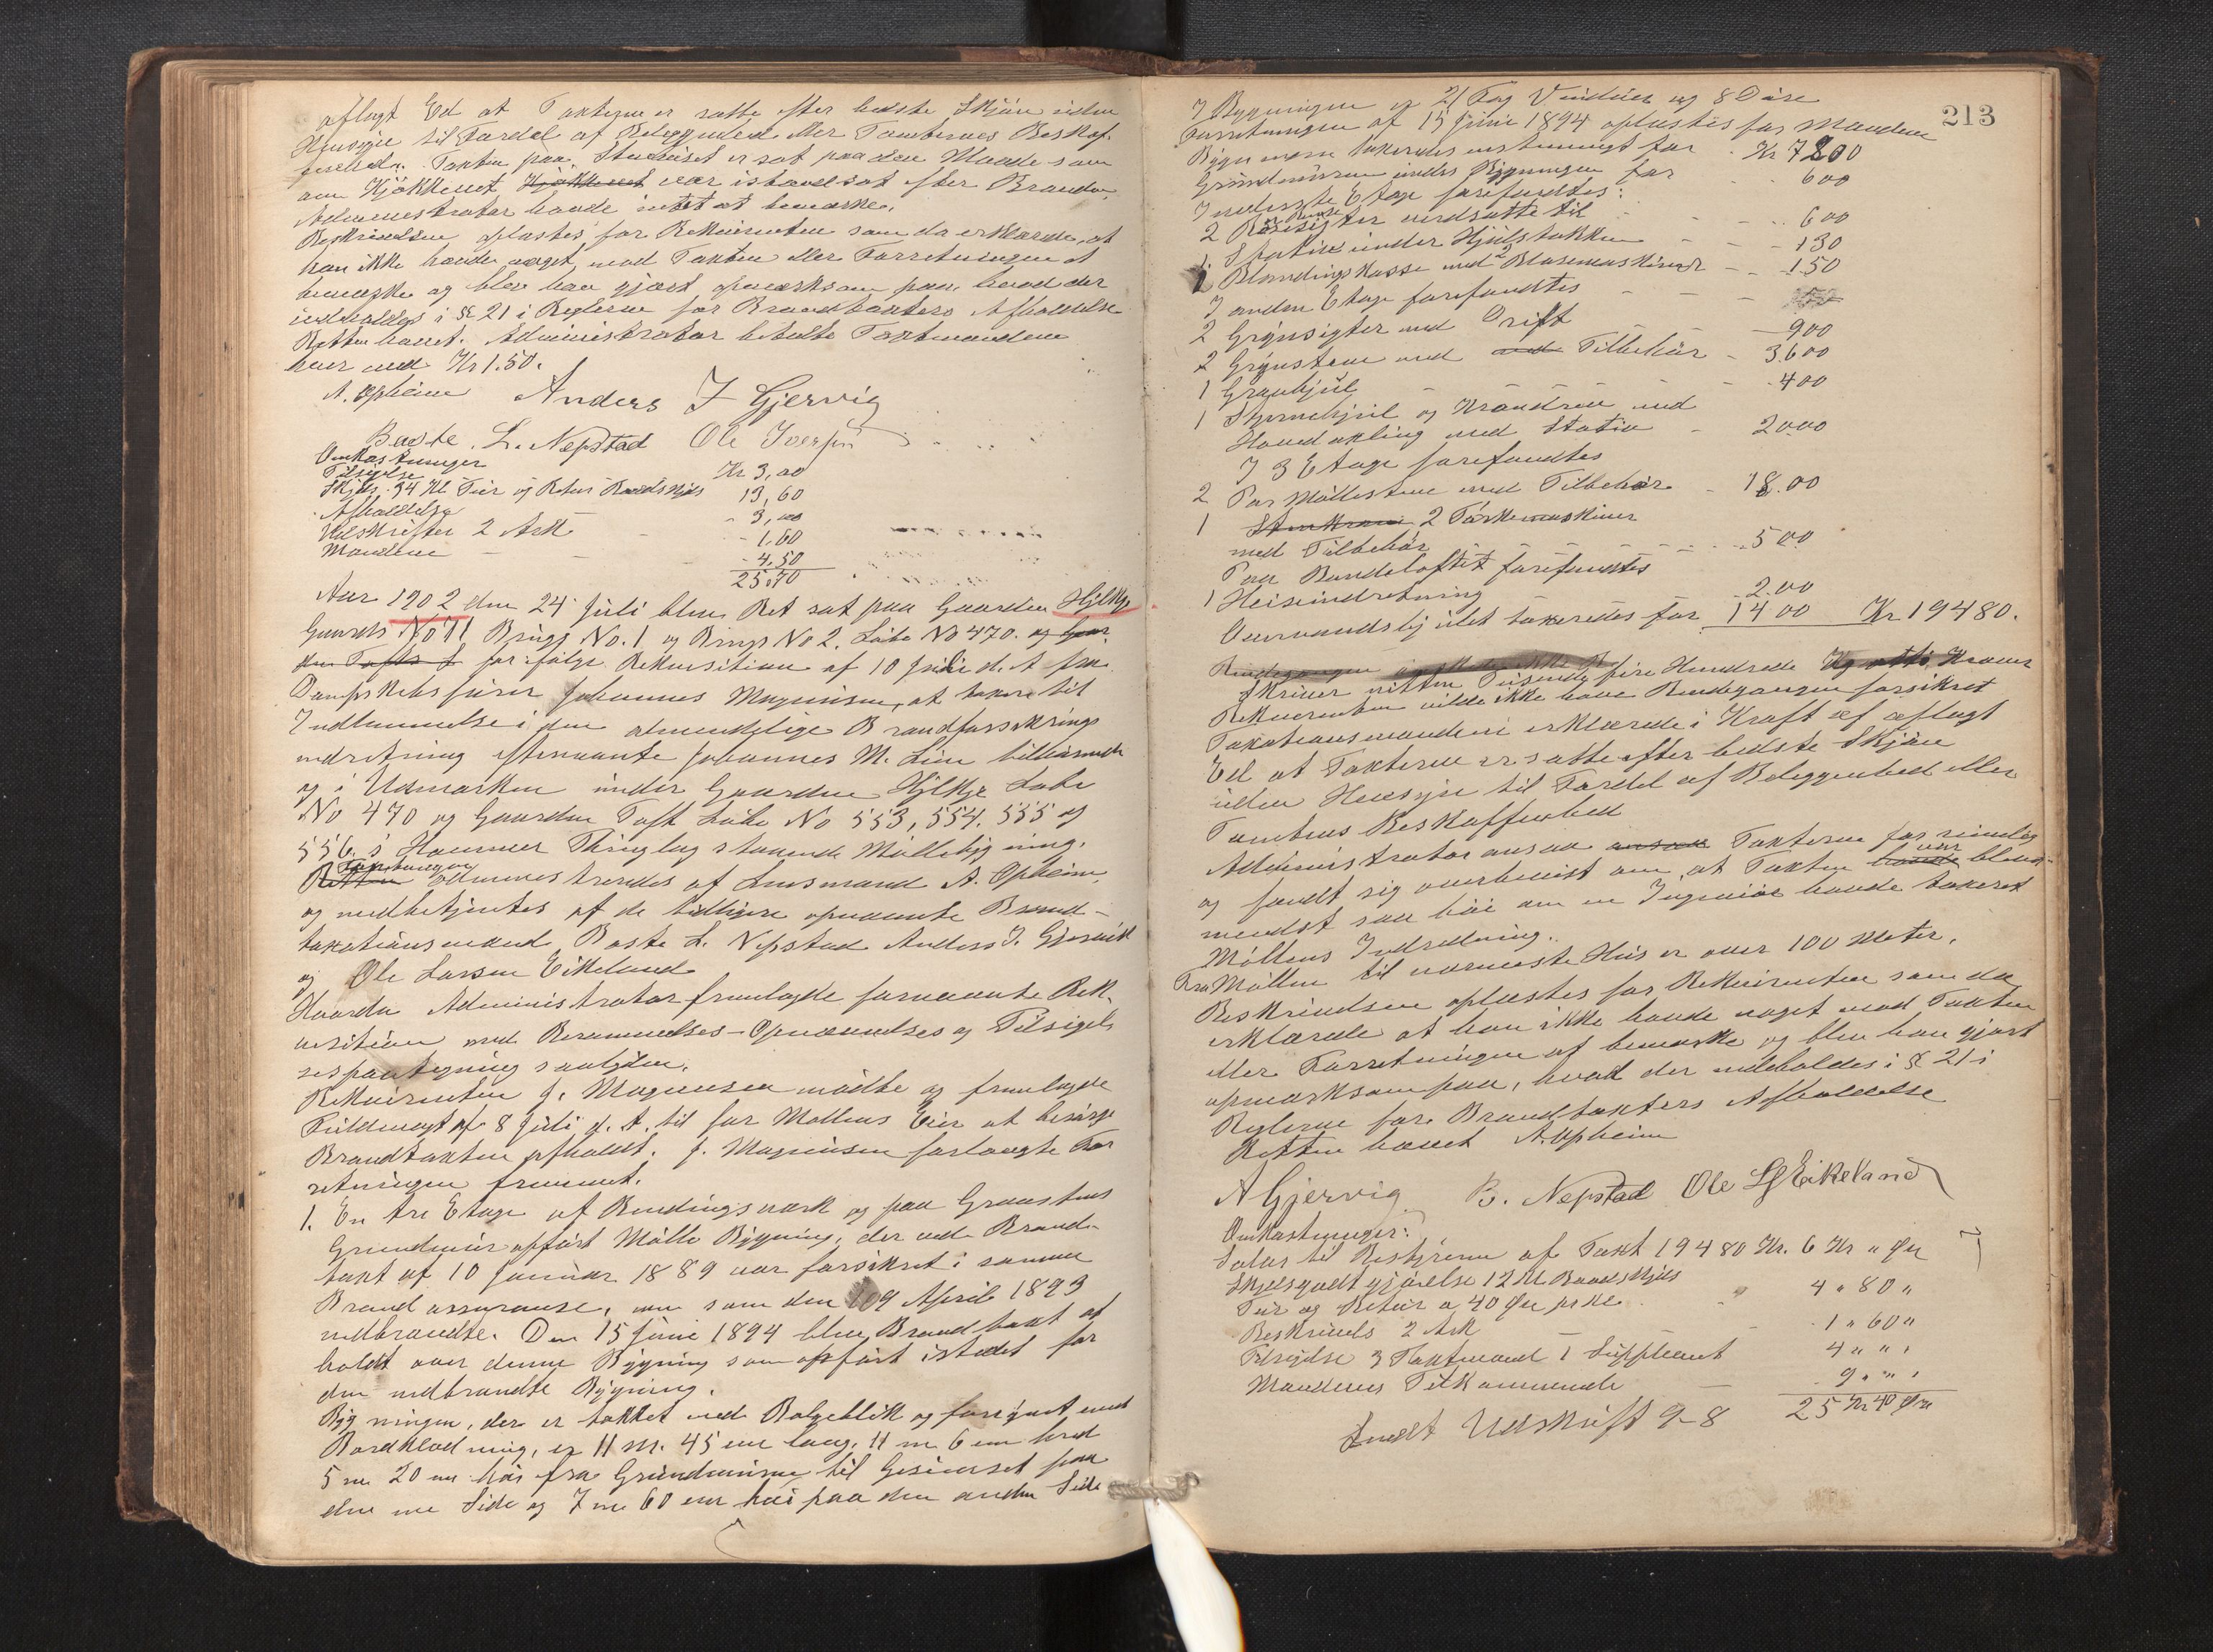 aflagt Ed at Taxterne er satte efter bedste Skjøn uden
Hensyn til Fordel af Beliggenhed eller Tomternes Beskaf-
fenhed. Taxten paa Stuehuset er sat paa den Maade som
om Kjøkkenet Kjøkkenet var istandsat efter Branden.
Administrator havde intet at bemærke.
Beskrivelsen oplæstes for Rekvirenten som da erklærede, at
han ikke havde noget mod Taxten eller Forretningen at
bemærke og blev han gjort opmærksom paa, hvad der
indholdes i § 21 i Reglerne for Brandtaxters Afholdelse
Retten hævet. Administrator betalte Taxtmændene
hver med Kr 1.50.
A. Opheim Anders J Gjervig
Baste L. Nepstad Ole Iversen
Omkostninger
Tilsigelse Kr 3,00
Skyds 34 Kl. Tur og Retur Baadskyds 13,60
Afholdelse " 3,00
Udskrifter 2 Ark - 1,60
Mændene - - 4,50
25,70
Aar 1902 den 24 Juli blev Ret sat paa Gaarden Hjelkje
Gaards No 11 Brugs No. 1 og Brugs No 2. Løbe No 470. og Gaar
den Tofts L for ifølge Rekvisition af 10 Juli d. A. fra
Dampskibsfører Johannes Magnusen, at taxere til
Indlemmelse i den almindelige Brandforsikrings
indretning efternævnte Johannes M. Lien tilhørende
og i Udmarken under Gaarden Hjelkje Løbe
No 470 og Gaarden Toft Løbe No 553, 554, 555 og
556 i Hammer Thinglag staaende Møllebygning.
Forretningen
Retten administreredes af Lensmand A. Opheim,
og medbetjentes af de tidligere opnævnte Brand-
taxationsmænd Baste L. Nepstad Anders J. Gjervik
og Ole Larsen Eikeland
Hvorda Administrator fremlagde fornævnte Rek-
visition med Berammelses- Opnævnelses og Tilsigel-
sespaategning saalyden.
Rekvirenten J. Magnusen mødte og fremlagde
Fuldmagt af 8 Juli d. A. til for Møllens Eier at besørge
Brandtaxten afholdt. J. Magnusen forlangte For
retningen fremmet.
1. En tre Etage af Bindingsværk og paa Graastens
Grundmur opført Mølle Bygning, der ved Brand-
taxt af 10 Januar 1889 var forsikret i samme
Brandassurance, men som den 9 April 1893
nedbrændte. Den 15 Juni 1894 blev Brandtaxt af
holdt over denne Bygning som opført istedet for
den nedbrændte Bygning.
Bygningen, der er tækket med Bølgeblik og forsynet med
Bordklædning, er 11 m. 45 cm lang, 11 m 6 cm bred
5 m 20 cm høi fra Grundmuren til Gesimset paa
den ene Side og 7 m 60 cm høi paa den anden Side
213
I Bygningen er 21 Fag Vinduer og 8 Døre
Forretningen af 15 Juni 1894 oplæstes for Mændene
Bygningen taxeredes enstemmigt for - Kr 7800
Grundmuren under Bygningen for - - 600
I nederste Etage forefandtes:
2 Rensesigter værdsatte til - - 600
1 Stativ under Hjulstokken - - - 130
1 Blandingskasse med 2 Blæsemaskiner - - 150
I anden Etage forefandtes
2 Grynsigter med Drift - - 900
2 Grynstene med med Tilbehør - 3600
1 Gravhjul - - - 400
1 Stjernehjul og Krondrev med
Hovedaxling med Stativ - 2000
I 3 Etage forefandtes
2 Par Møllestene med Tilbehør - 1800
1 2 Tørkemaskiner
med Tilbehør - - - 500
Paa Bundeloftet forefandtes
1 Heiseindretning - 200
Overvandshjulet taxeredes for 1400 Kr 19480.
Skriver nitten Tusinde fire Hundrede Kroner
Rekvirenten vilde ikke have Rendegangen forsikret
Taxationsmændene erklærede i Kraft af aflagt
Ed at Taxterne er satte efter bedste Skjøn
uden Hensyn til Fordel af Beliggenhed eller
Tomtens Beskaffenhed
Administrator ansaa ansaa Taxterne for rimelig
og fandt sig overbevist om, at Taxten havde var blevet
mindst saa høi om en Ingeniør havde taxeret
Møllens Indredning.
Fra Møllen til nærmeste Hus er over 100 Meter.
Beskrivelsen oplæstes for Rekvirenten som da
erklærede at han ikke havde noget mod Taxten
eller Forretningen at bemærke og blev han gjort
opmærksom paa, hvad der indeholdes i § 21 i
Reglerne for Brandtaxters Afholdelse
Retten hævet A. Opheim
A Gjervig B. Nepstad Ole L Eikeland
Omkostninger:
Salær til Bestyreren af Taxt 19480 Kr. 6 Kr " Øre
Skydsgodtgjørelse 12 Kl Baadskyds
Tur og Retur a 40 Øre pr Kl. 4 " 80 "
Beskrivels 2 Ark - 1 " 60 "
Tilsigelse 3 Taxtmænd 1 Suppleant 4 " " "
Mændenes Tilkommende - 9 " " "
25 Kr 40 Øre
Sendt Udskrift 9-8